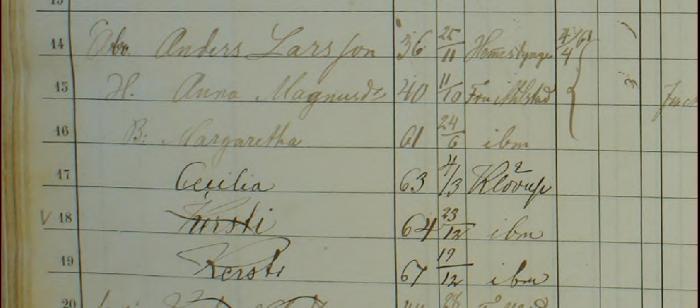 13
14 Åbo. Anders Larsson 36 25/11 4/4
15 H. Anna Magnusdr 40 11/10 Fru Alstad
16 B: Margaretha 61 24/6 ibm
17 Cecilia 63 4/3 Klörup
V 18 Kersti 64 23/12 ibm
19 Kersti 67 19/12 ibm
20